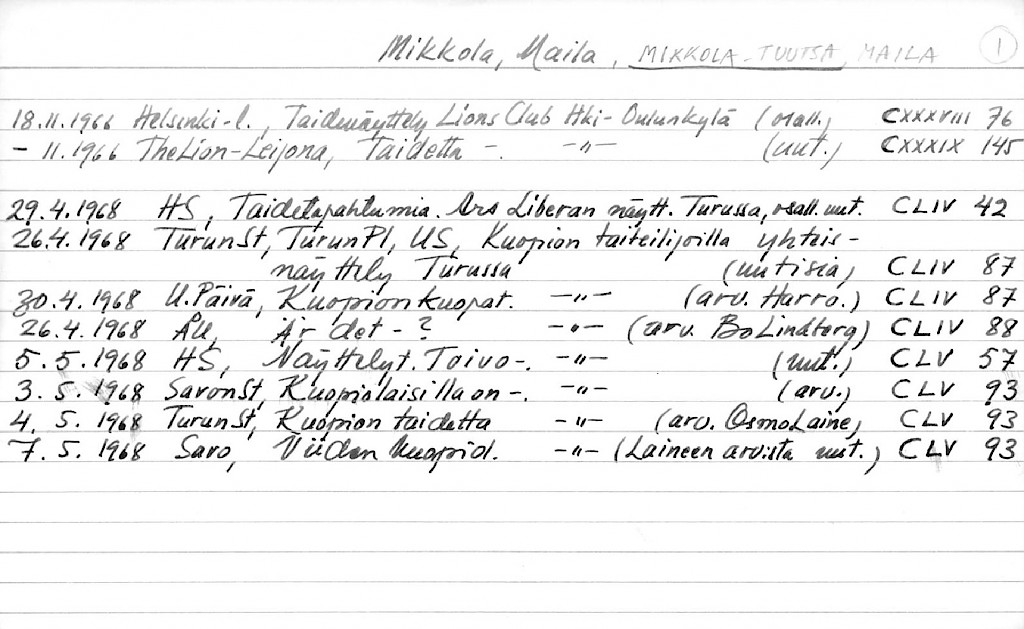 Mikkola, Maila, MIKKOLA-TUUTSA, MAILA 1
18.11.1966 Helsinki-l., Taidenäyttely Lions Club Hki-Oulunkylä (osall.) CXXXVIII 76
- 11.1966 The Lion-Leijona, Taidetta -. -"- (uut.) CXXXIX 145
29.4.1968 HS, Taidetapahtumia. Ars Liberan näytt. Turussa, osall. uut. CLIV 42
26.4.1968 TurunSt, TurunPl, US, Kuopion taiteilijoilla yhteis-
näyttely Turussa (uutisia) CLIV 87
30.4.1968 U.Päivä, Kuopion kuopat. -"- (arv. Harro.) CLIV 87
26.4.1968 ÅU, Är det - ? -"- (arv. Bo Lindberg) CLIV 88
5.5.1968 HS, Näyttelyt. Toivo-. -"- (uut.) CLV 57
3.5.1968 SavonSt, Kuopiolaisilla on -. -"- (arv.) CLV 93
4.5.1968 TurunSt, Kuopion taidetta -"- (arv. Osmo Laine) CLV 93
7.5.1968 Savo, Viiden kuopiol. -"- (Laineen arvista uut.) CLV 93